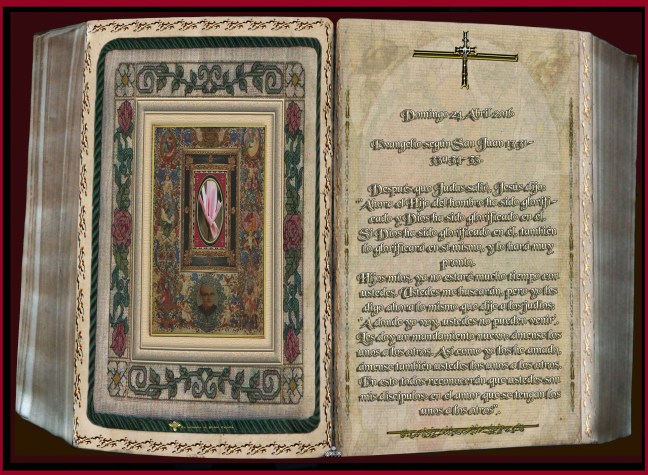 Domingo 24 Abril 2016
Evangelio según San Juan 13,31-
33a.34-35
Después que Judas salió, Jesús dijo:
"Ahora el Hijo del hombre ha sido glorifi-
cado y Dios ha sido glorificado en él.
Si Dios ha sido glorificado en él, también
lo glorificará en sí mismo, y lo hará muy
pronto.
Hijos míos, ya no estaré mucho tiempo con
ustedes. Ustedes me buscarán, pero yo les
digo ahora lo mismo que dije a los judíos:
'A donde yo voy ustedes no pueden venir'.
Les doy un mandamiento nuevo: ámense los
unos a los otros. Así como yo los he amado,
ámense también ustedes los unos a los otros.
En esto todos reconocerán que ustedes son
mis discípulos: en el amor que se tengan los
unos a los otros".